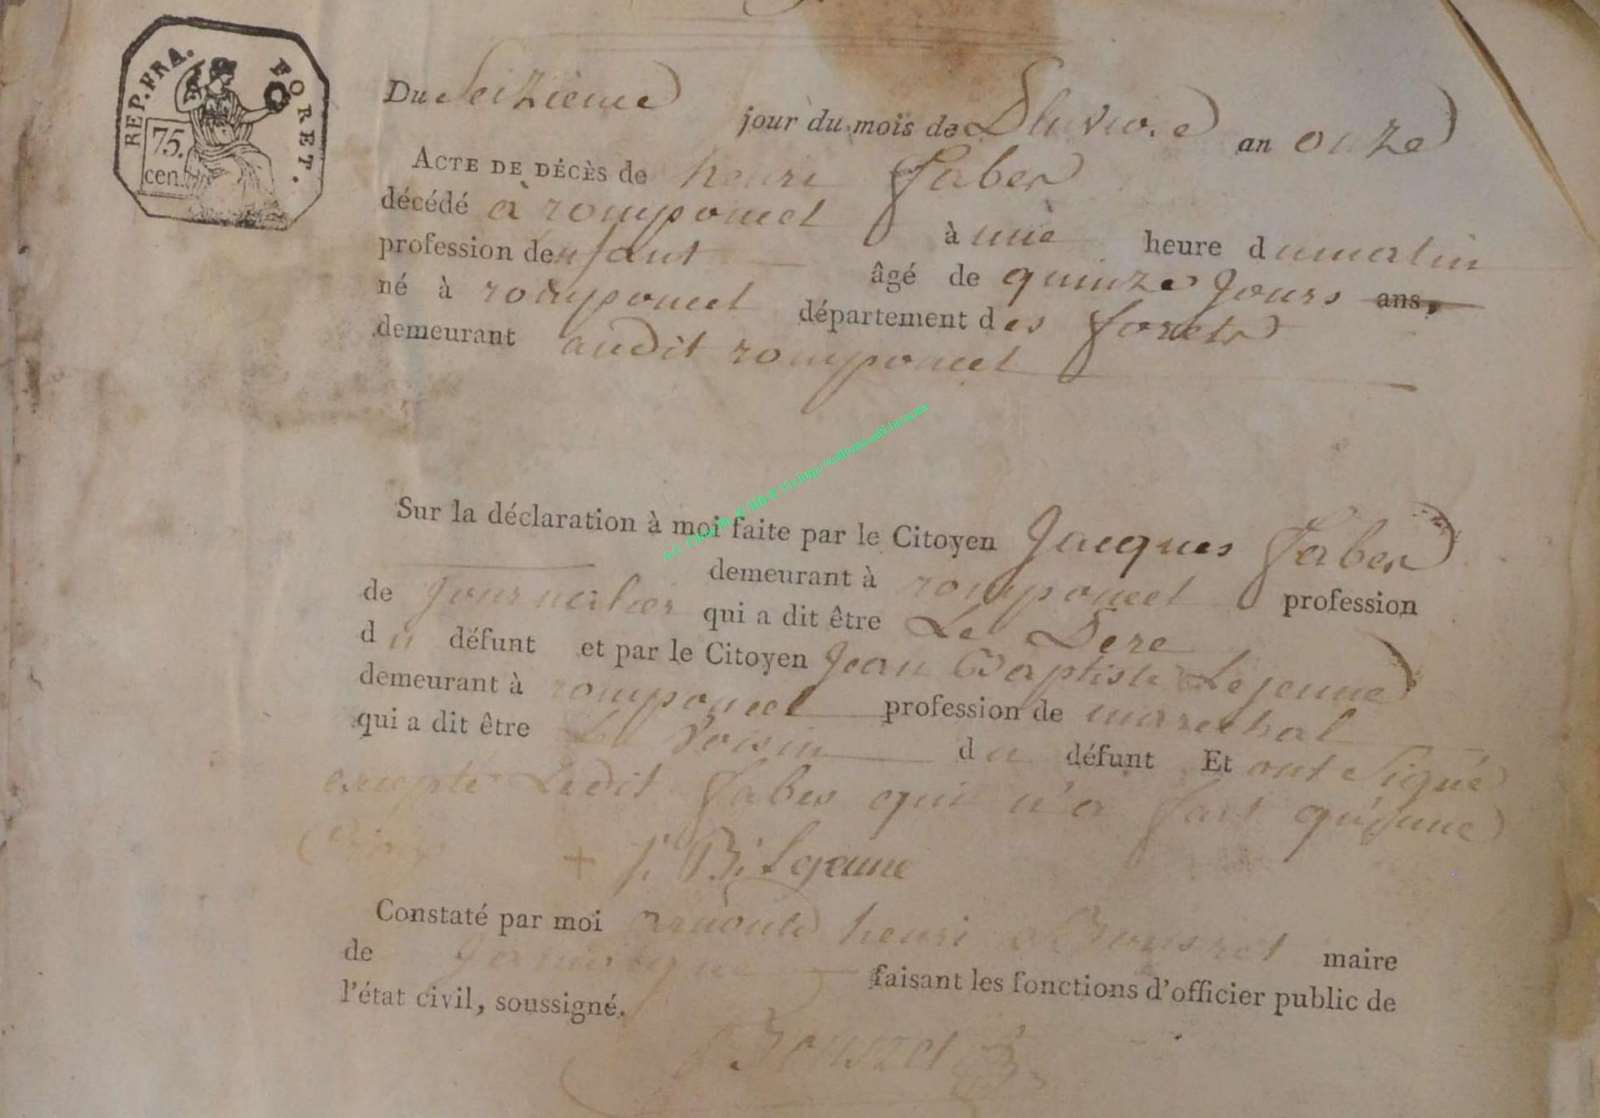 REP. FRA. FORET.
75.
cen.
Du Seizieme jour du mois de Pluviose an onze
ACTE DE DÉCÈS de henri faber
décédé à romponcel à une heure du matin
profession denfant âgé de quinze jours ans,
né à romponcel département des forets
demeurant audit romponcel
Sur la déclaration à moi faite par le Citoyen Jacques faber
demeurant à romponcel profession
de journalier qui a dit être Le Pere
du défunt et par le Citoyen Jean Baptiste Lejeune
demeurant à romponcel profession de marechal
qui a dit être Le Voisin du défunt Et ont Signé
excepté Ledit faber qui n'a fait qu'une
Croix + J. B. Lejeune
Constaté par moi arnould henri maire
de faisant les fonctions d'officier public de
l'état civil, soussigné.